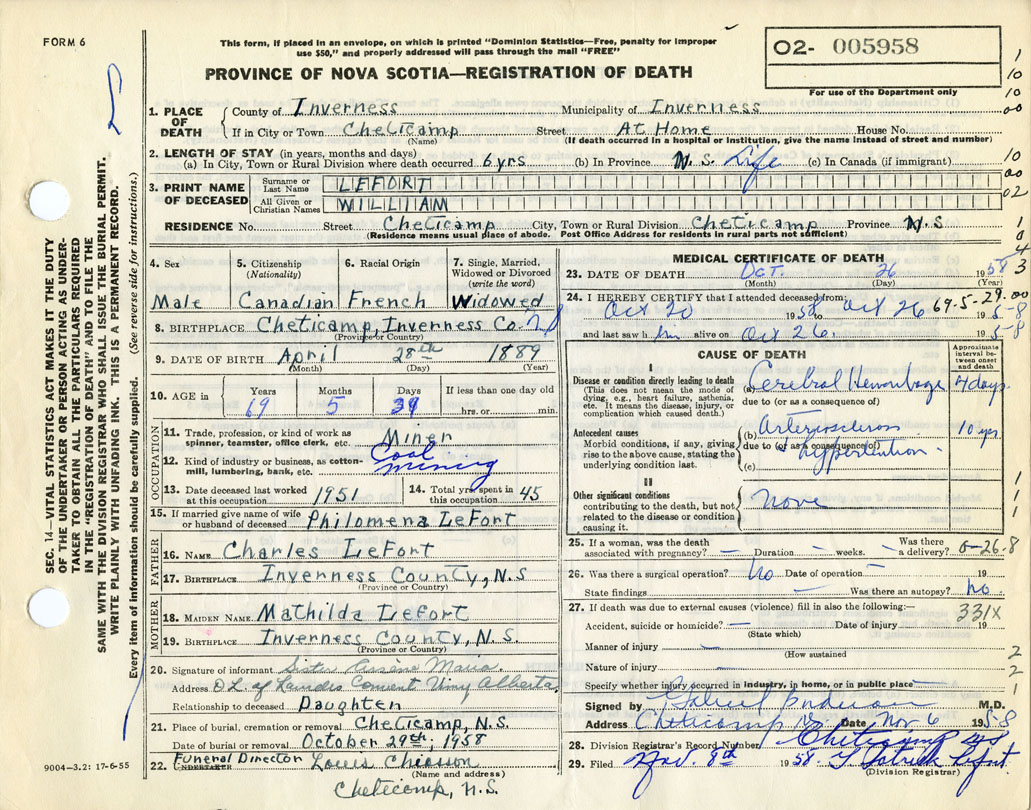 FORM 6
This form, if placed in an envelope, on which is printed "Dominion Statistics—Free, penalty for improper
use $50," and properly addressed will pass through the mail "FREE"
PROVINCE OF NOVA SCOTIA—REGISTRATION OF DEATH
O2- 005958
For use of the Department only
SEC. 14—VITAL STATISTICS ACT MAKES IT THE DUTY
OF THE UNDERTAKER OR PERSON ACTING AS UNDER-
TAKER TO OBTAIN ALL THE PARTICULARS REQUIRED
IN THE "REGISTRATION OF DEATH" AND TO FILE THE
SAME WITH THE DIVISION REGISTRAR WHO SHALL ISSUE THE BURIAL PERMIT.
WRITE PLAINLY WITH UNFADING INK. THIS IS A PERMANENT RECORD.
Every item of information should be carefully supplied. (See reverse side for instructions.)
1. PLACE OF DEATH County of Inverness Municipality of Inverness
If in City or Town Cheticamp Street At Home House No.
(Name) (If death occurred in a hospital or institution, give the name instead of street and number)
2. LENGTH OF STAY (in years, months and days)
(a) In City, Town or Rural Division where death occurred 6 yrs (b) In Province N.S. Life (c) In Canada (if immigrant)
3. PRINT NAME OF DECEASED Surname or Last Name LEFORT
All Given or Christian Names WILLIAM
RESIDENCE No. Street Cheticamp City, Town or Rural Division Cheticamp Province N.S
(Residence means usual place of abode. Post Office Address for residents in rural parts not sufficient)
4. Sex 5. Citizenship (Nationality) 6. Racial Origin 7. Single, Married, Widowed or Divorced (write the word)
Male Canadian French Widowed
8. BIRTHPLACE Cheticamp, Inverness Co.
(Province or Country)
9. DATE OF BIRTH April 28th 1889
(Month) (Day) (Year)
10. AGE in Years Months Days If less than one day old
69 5 hrs. or min.
OCCUPATION
11. Trade, profession, or kind of work as spinner, teamster, office clerk, etc. Miner
12. Kind of industry or business, as cotton-mill, lumbering, bank, etc. Coal mining
13. Date deceased last worked at this occupation 1951 14. Total yrs. spent in this occupation 45
15. If married give name of wife or husband of deceased Philomena LeFort
FATHER
16. NAME Charles LeFort
17. BIRTHPLACE Inverness County, N.S
(Province or Country)
MOTHER
18. MAIDEN NAME Mathilda LeFort
19. BIRTHPLACE Inverness County, N.S.
(Province or Country)
20. Signature of informant Sister Maria
Address O.L. of Lourdes Convent Vimy Alberta
Relationship to deceased Daughter
21. Place of burial, cremation or removal Cheticamp, N.S.
Date of burial or removal October 29th, 1958
22. Funeral Director UNDERTAKER Louis Chiasson
(Name and address)
Cheticamp, N.S.
9004-3.2: 17-6-55
MEDICAL CERTIFICATE OF DEATH
23. DATE OF DEATH Oct. 26 1958
(Month) (Day) (Year)
24. I HEREBY CERTIFY that I attended deceased from:
Oct 20 1958 to Oct 26 1958
69-5-29.00
and last saw him alive on Oct 26. 195-8
CAUSE OF DEATH
Approximate interval between onset and death
I
Disease or condition directly leading to death
(This does not mean the mode of dying, e.g., heart failure, asthenia, etc. It means the disease, injury, or complication which caused death.)
(a) Cerebral Hemorrhage 4 days
due to (or as a consequence of)
Antecedent causes
Morbid conditions, if any, giving rise to the above cause, stating the underlying condition last.
(b) Arteriosclerosis 10 yrs
due to (or as a consequence of)
(c) hypertention
II
Other significant conditions
contributing to the death, but not related to the disease or condition causing it.
None
25. If a woman, was the death associated with pregnancy? — Duration — weeks. Was there a delivery? —
0-26-8
26. Was there a surgical operation? No Date of operation — 19
State findings — Was there an autopsy? no.
27. If death was due to external causes (violence) fill in also the following:—
331X
Accident, suicide or homicide? — Date of injury 19
(State which)
Manner of injury —
(How sustained
Nature of injury —
Specify whether injury occurred in industry, in home, or in public place —
Signed by Gabriel M.D.
Address Cheticamp Date Nov 6 1958
28. Division Registrar's Record Number Cheticamp
29. Filed Nov. 8th 1958. Patrick LeFort
(Division Registrar)